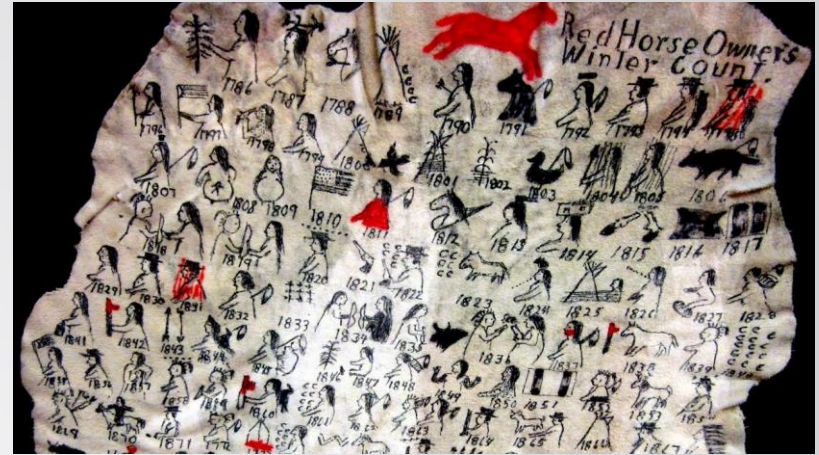 Red Horse Owner's
Winter Count.
1786 1787 1788 1789
1790 1791 1792 1793 1794
1796 1797 1798 1799 1800 1801 1802 1803 1804 1805 1806
1807 1808 1809 1810 1811 1812 1813 1814 1815 1816 1817
1818 1819 1820 1821 1822 1823 1824 1825 1826 1827 1828
1829 1830 1831 1832 1833 1834 1835 1836 1837 1838 1839
1841 1842 1843 1844 1845 1846 1847 1848 1849 1850 1851 1852 1853
1856 1857 1858 1859 1860 1861 1863 1864 1865
1869 1870 1871